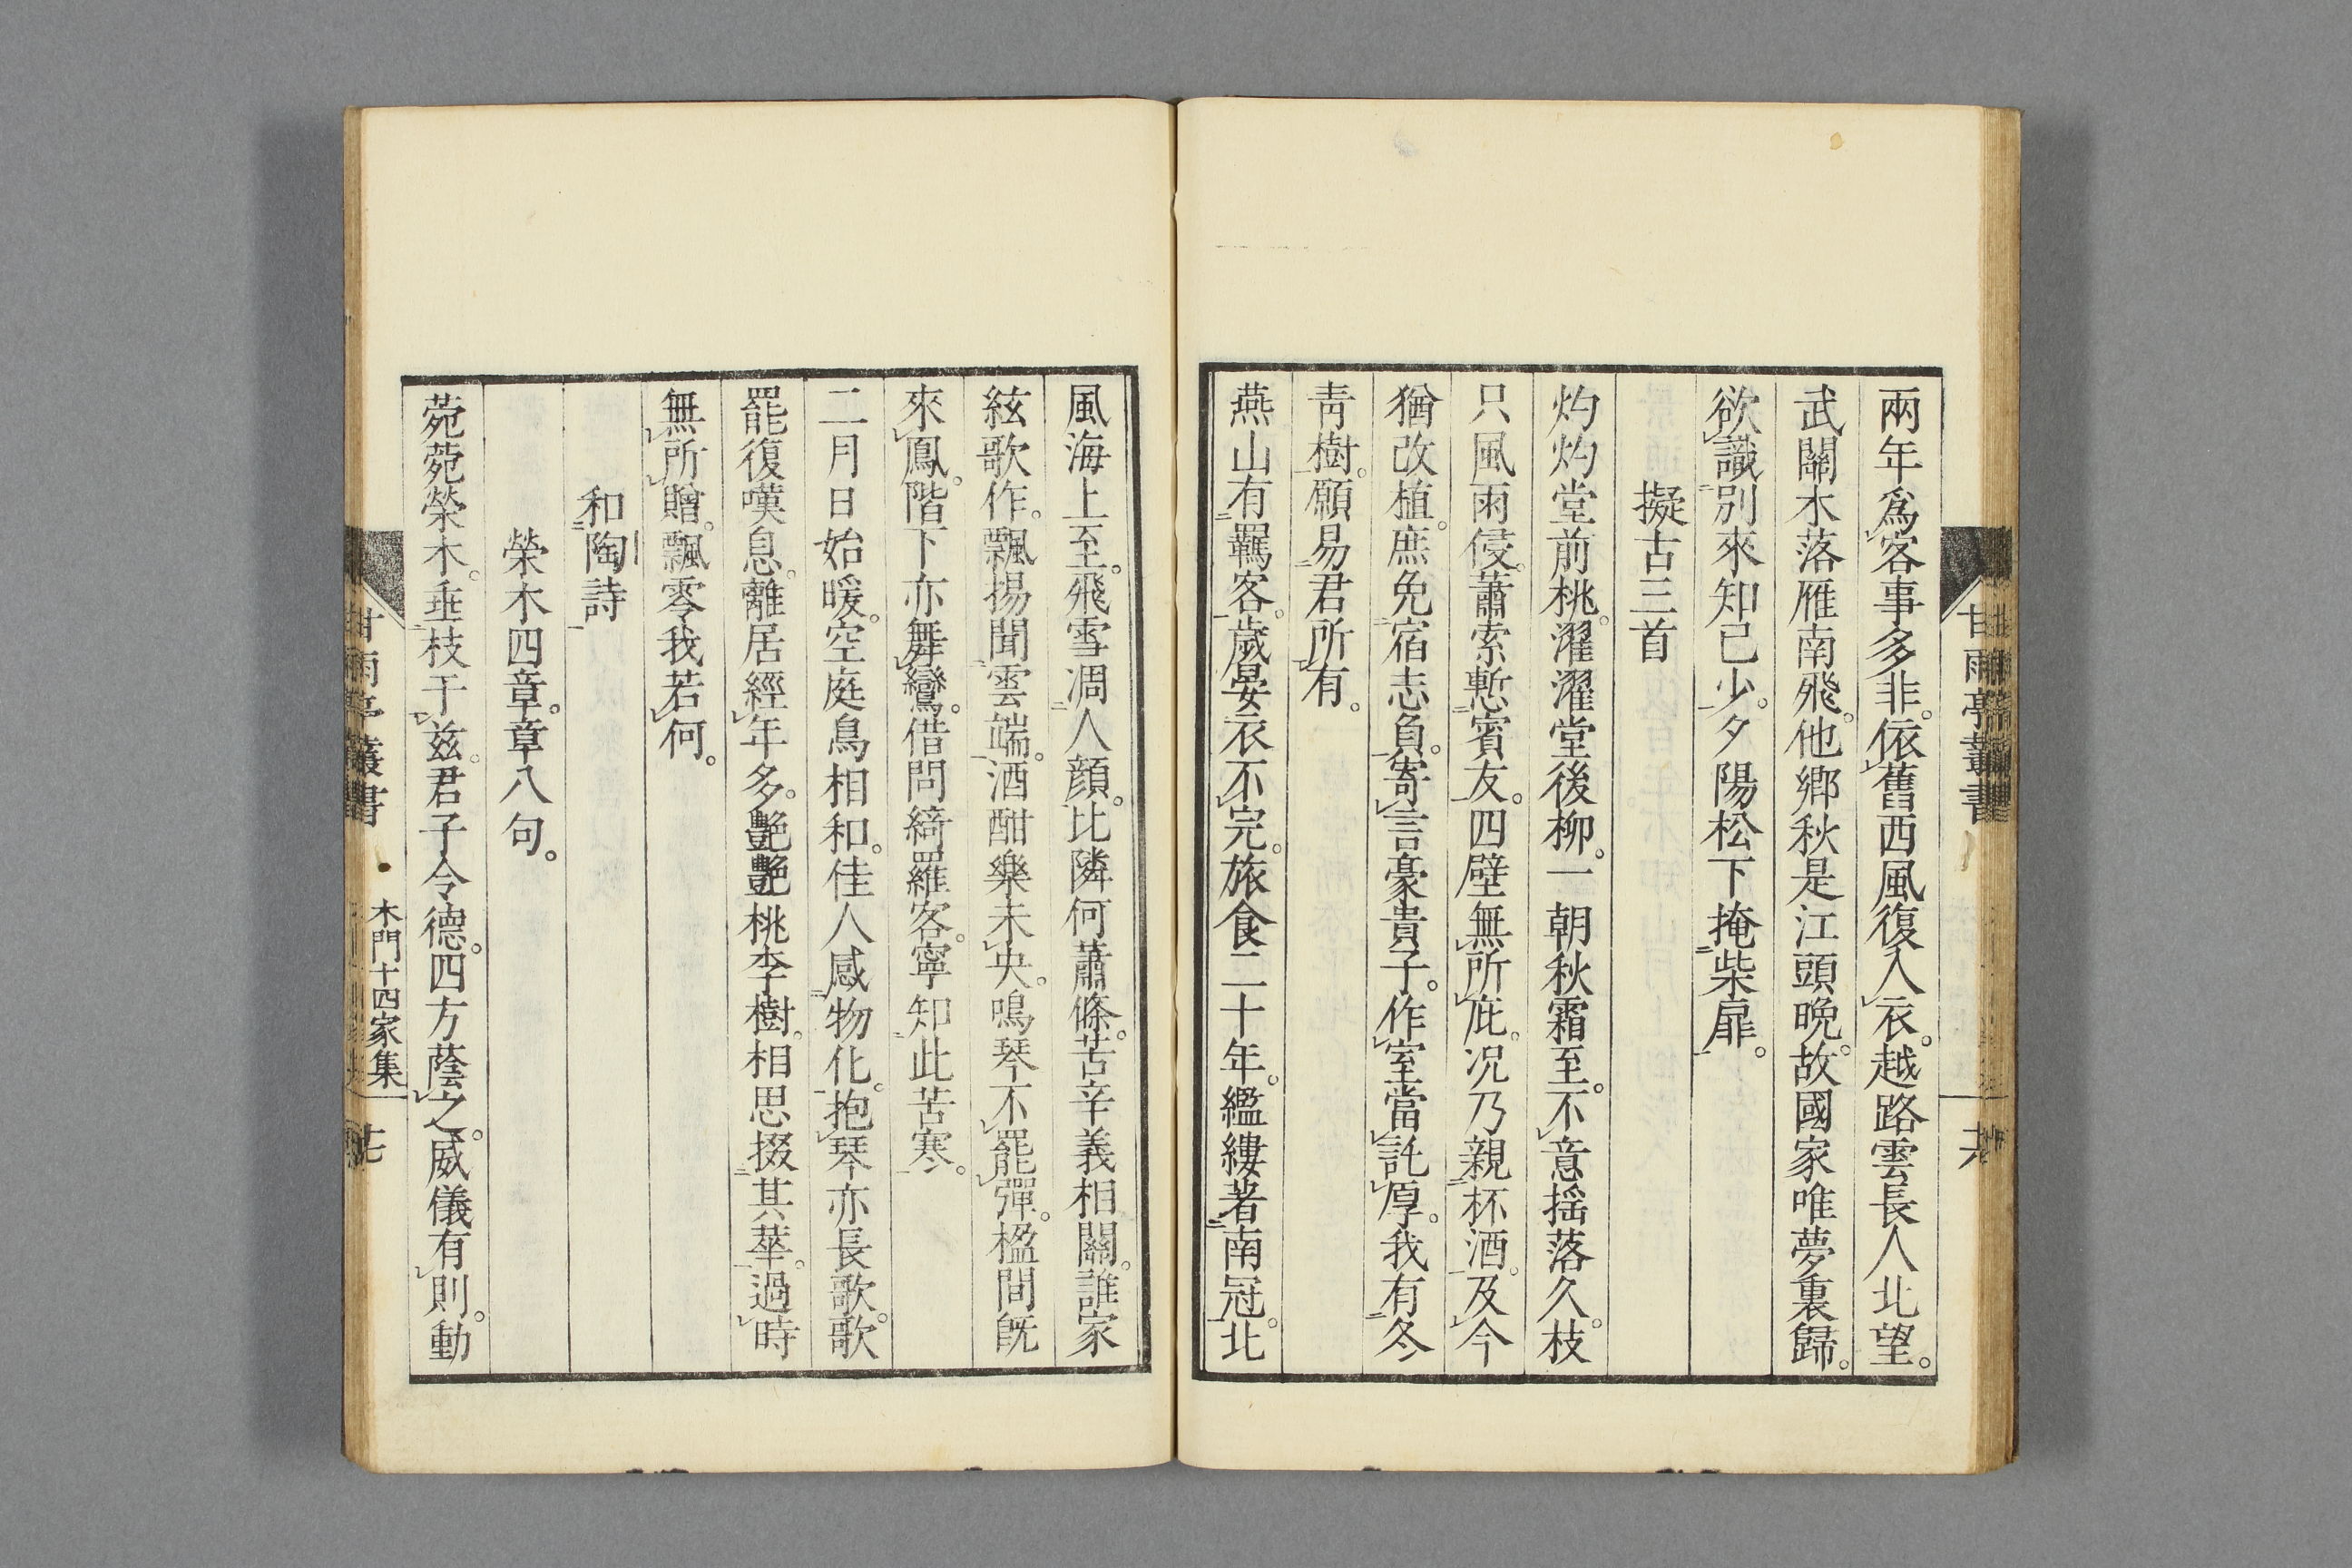 兩年爲客事多非。依舊西風復入衣。越路雲長人北望。
武關木落雁南飛。他鄉秋是江頭晩。故國家唯夢裏歸。
欲識別來知己少。夕陽松下掩柴扉。
擬古三首
灼灼堂前桃。濯濯堂後柳。一朝秋霜至。不意揺落久。枝
只風雨侵。蕭索慙賓友。四壁無所庇。况乃親杯酒。及今
猶改植。庶免宿志負。寄言豪貴子。作室當託厚。我有冬
靑樹。願易君所有。
燕山有羈客。歲晏衣不完。旅食二十年。繿縷著南冠。北
甘雨亭叢書
十六
風海上至。飛雪凋人顔。比隣何蕭條。苦辛義相關。誰家
絃歌作。飄揚聞雲端。酒酣樂未央。鳴琴不罷彈。楹間旣
來鳳。階下亦舞鸞。借問綺羅客。寧知此苦寒。
二月日始暖。空庭鳥相和。佳人感物化。抱琴亦長歌。歌
罷復嘆息。離居經年多。艷艷桃李樹。相思掇其華。過時
無所贈。飄零我若何。
和陶詩
榮木四章。章八句。
菀菀榮木。垂枝于兹。君子令德。四方蔭之。威儀有則。動
甘雨亭叢書
木門十四家集
十七